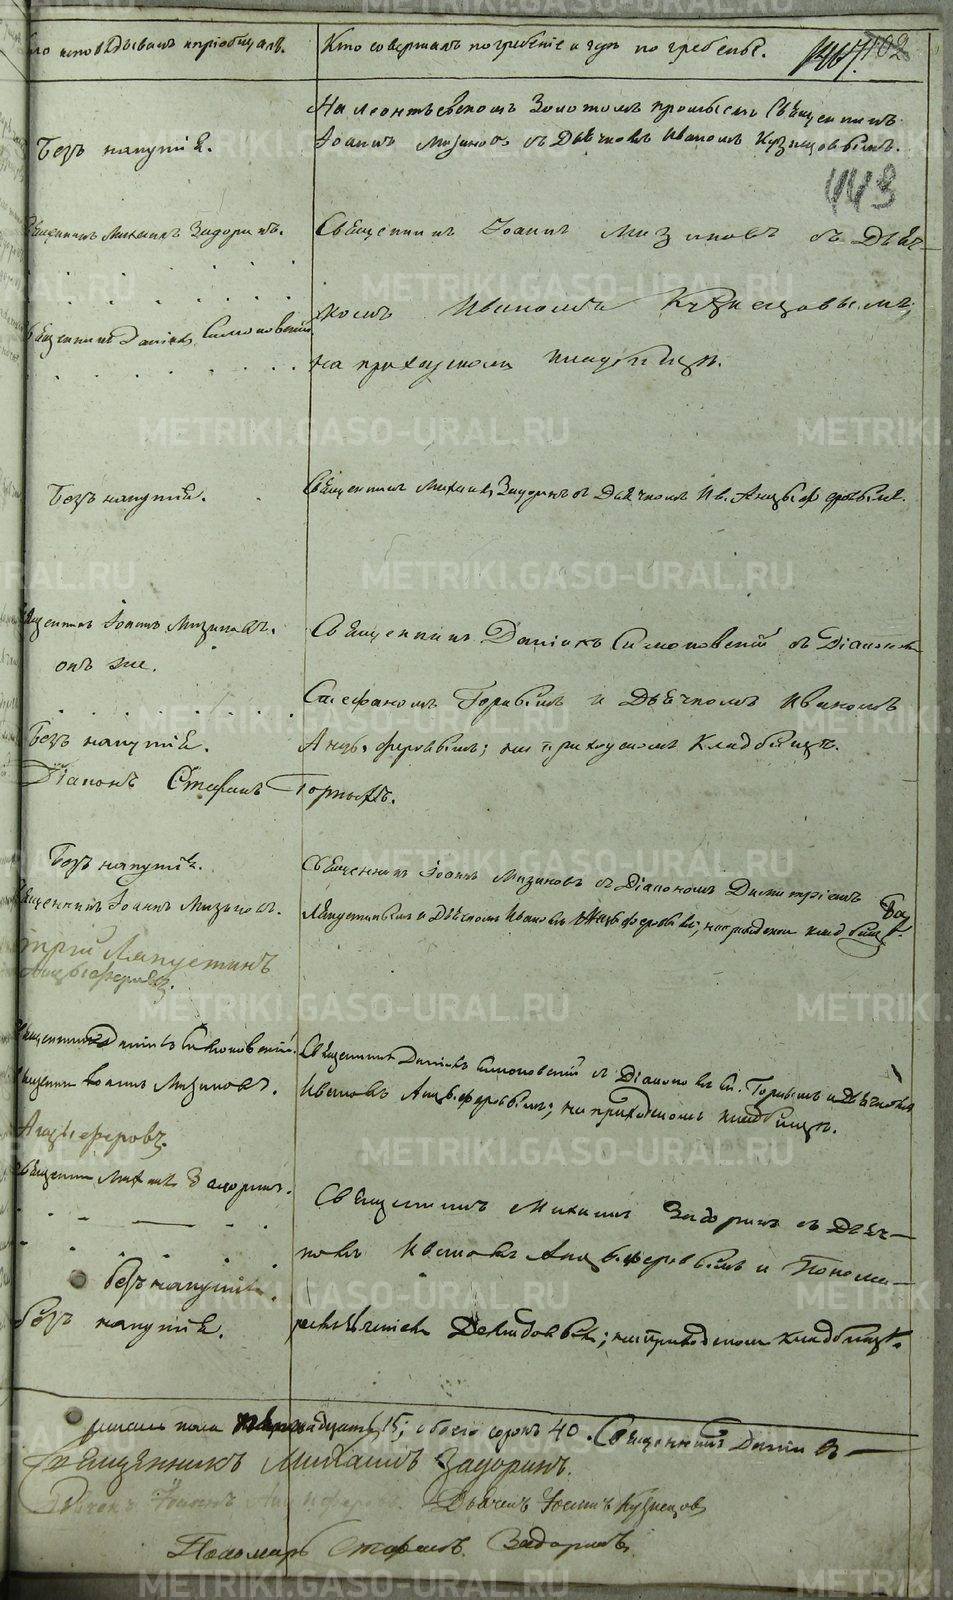 исповѣдывалъ и пріобщалъ.
Кто совершалъ погребеніе и гдѣ погребены.
102
443
Безъ напутія.
На Леонтьевскомъ Золотомъ промыслѣ Священникъ
Іоаннъ Мизиновъ съ Дьячкомъ Иваномъ Кузнецовымъ.
Священникъ Михаилъ Задоринъ.
Священникъ Іоаннъ Мизиновъ съ Дьяч-
комъ Иваномъ Кузнецовымъ;
Священникъ Даніилъ Симоновскій
на приходскомъ кладбищѣ.
Безъ напутія.
Священникъ Михаилъ Задоринъ съ Дьячкомъ Ив. Анцыферовымъ.
Священникъ Іоаннъ Мизиновъ.
онъ же.
Священникъ Даніилъ Симоновскій съ Діакономъ
Стефаномъ Горнымъ и Дьячкомъ Иваномъ
Безъ напутія.
Анцыферовымъ; на приходскомъ кладбищѣ.
Діаконъ Стефанъ Горныхъ.
Безъ напутія.
Священникъ Іоаннъ Мизиновъ.
Священникъ Іоаннъ Мизиновъ съ Діакономъ Димитріемъ
Ляпустинымъ и Дьячкомъ Иваномъ Анцыферовымъ; на приходскомъ кладбищѣ.
Ляпустинъ
Анцыферовъ.
Священникъ Даніилъ Симоновскій.
Священникъ Іоаннъ Мизиновъ.
Священникъ Даніилъ Симоновскій съ Діакономъ Ст. Горнымъ и Дьячкомъ
Иваномъ Анцыферовымъ; на приходскомъ кладбищѣ.
Анцыферовъ.
Священникъ Михаилъ Задоринъ.
Священникъ Михаилъ Задоринъ съ Дьяч-
комъ Иваномъ Анцыферовымъ и Понома-
Безъ напутія.
Безъ напутія.
на приходскомъ кладбищѣ.
женска пола 15; обоего сорокъ 40. Священникъ Даніилъ
Священникъ Михаилъ Задоринъ.
Дьячекъ Іоаннъ Анциферовъ. Дьячекъ Іоаннъ Кузнецовъ
Пономарь Стефанъ Задоринъ.
METRIKI.GASO-URAL.RU